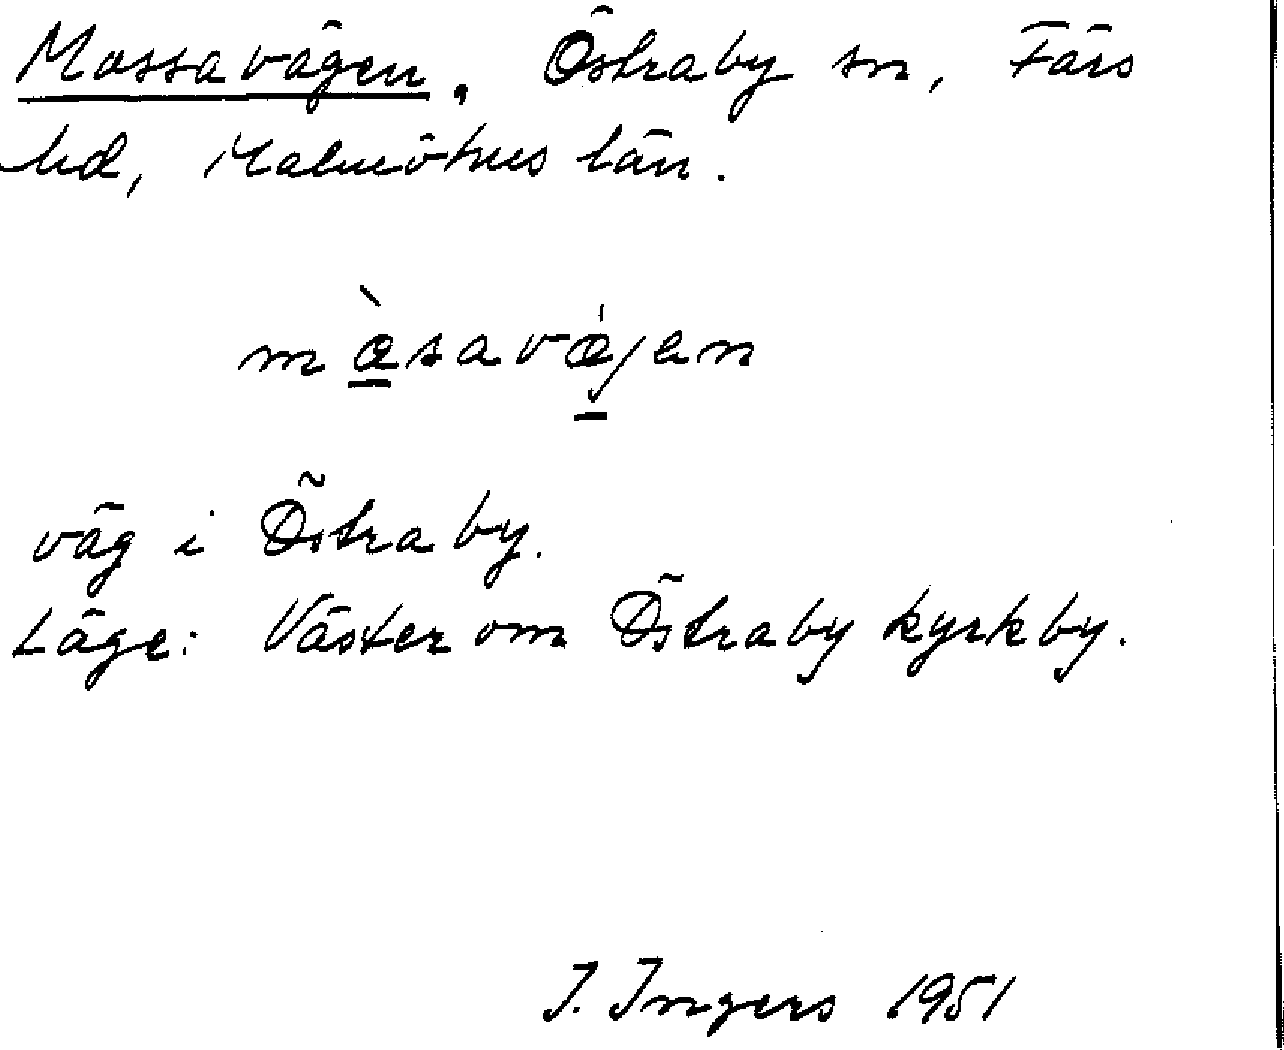 Mossavägen, Östraby sn, Färs
hd, Malmöhus län.
mæ̀savǽjen
väg i Östraby.
Läge: Väster om Östraby kyrkby.
I. Ingers 1951